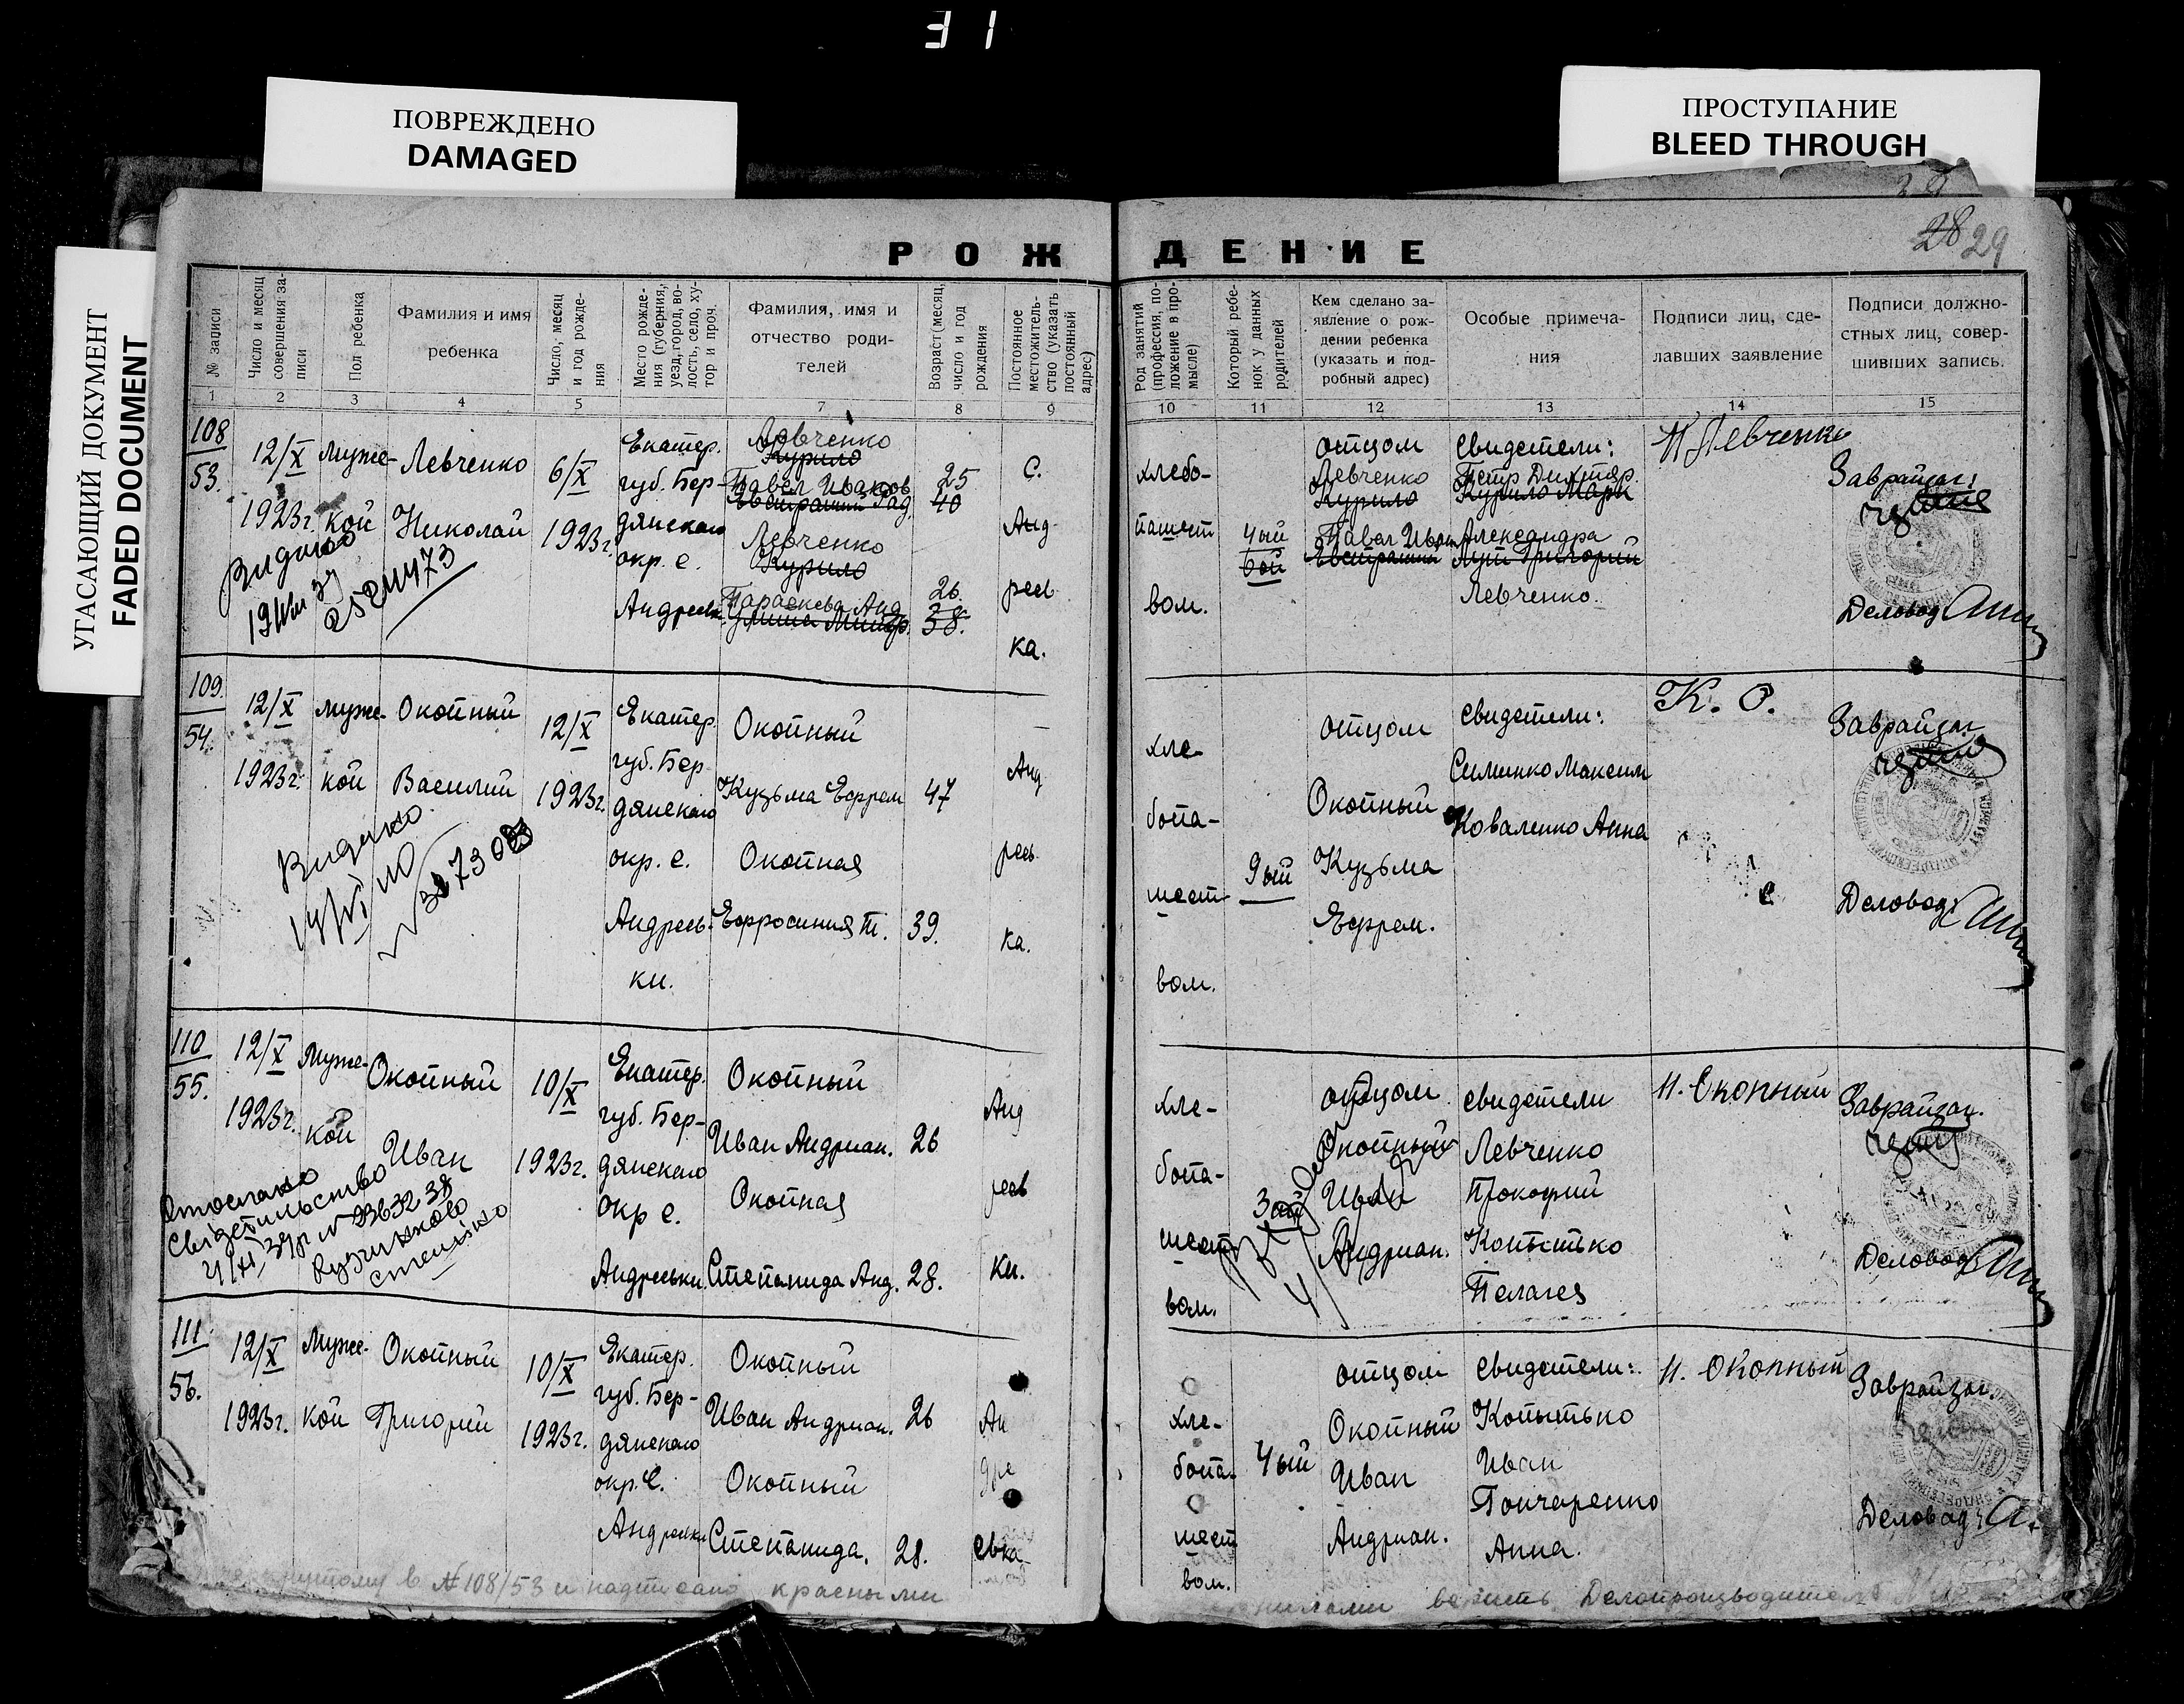 31
ПОВРЕЖДЕНО
DAMAGED
ПРОСТУПАНИЕ
BLEED THROUGH
УГАСАЮЩИЙ ДОКУМЕНТ
FADED DOCUMENT
28 29
РОЖДЕНИЕ
№ записи
Число и месяц совершения записи
Пол ребенка
Фамилия и имя ребенка
Число, месяц и год рождения
Место рождения (губерния, уезд, город, волость, село, хутор и проч.
Фамилия, имя и отчество родителей
Возраст (месяц, число и год рождения
Постоянное местожительство (указать постоянный адрес)
Род занятий (профессия, положение в промысле)
Который ребенок у данных родителей
Кем сделано заявление о рождении ребенка (указать и подробный адрес)
Особые примечания
Подписи лиц, сделавших заявление
Подписи должностных лиц, совершивших запись.
1 2 3 4 5 6 7 8 9 10 11 12 13 14 15
108
53.
12/X
1923г.
Муже-
кой
Левченко
Николай
6/X
1923г.
Екатер.
губ. Бер-
дянского
окр. с.
Андреевк.
Левченко
Курило
Павел Иванов
Левченко
Курило
Параскева Анд.
25
40
26
38.
с.
Анд
реев
ка.
хлебо-
пашест
вом.
4ый
6ой
отцом
Левченко
Курило
Павел Иван
свидетели:
Петр Дихтяр.
Курило Марк
Александра
Левченко.
Н Левченко
Заврайзаг.
Деловод
Видано
2521473
109.
54.
12/X
1923г.
муже-
кой
Окопный
Василий
12/X
1923г.
Екатер
губ. Бер
дянского
окр. с.
Андреев-
ки.
Окопный
Кузьма Ефрем
Окопная
Ефросиния Т.
47
39.
Анд
реев-
ка.
хле-
бопа-
шест-
вом.
9ый
отцом
Окопный
Кузьма
Ефрем.
свидетели:
Симинко Максим
Коваленко Анна
К. О.
Заврайзаг
Деловод
Видано
110
55.
12/X
1923г.
Муже-
кой
Окопный
Иван
10/X
1923г.
Екатер.
губ. Бер-
дянского
окр с.
Андреевки.
Окопный
Иван Андриан.
Окопная
Степанида Анд.
26
28.
Анд
реев
ки.
хле-
бопа-
шест
вом.
отцом
Окопный
Иван
Андриан.
свидетели
Левченко
Прокофий
Копытько
Пелагея
И. Окопный
Заврайзаг.
Деловод
Отослано
Свідетильство
111
56.
12/X
1923г.
Муже-
кой
Окопный
Григорий
10/X
1923г.
Екатер.
губ. Бер-
дянского
окр. с.
Андреевк.
Окопный
Иван Андриан.
Окопный
Степанида.
26
28.
Ан
дре
евка
хле-
бопа-
шест
вом.
4ый
отцом
Окопный
Иван
Андриан.
свидетели:
Копытько
Иван
Гончаренко
Анна.
И. Окопный
Заврайзаг.
Деловод
в №108/53 и надписано красными
верить Делопроизводитель